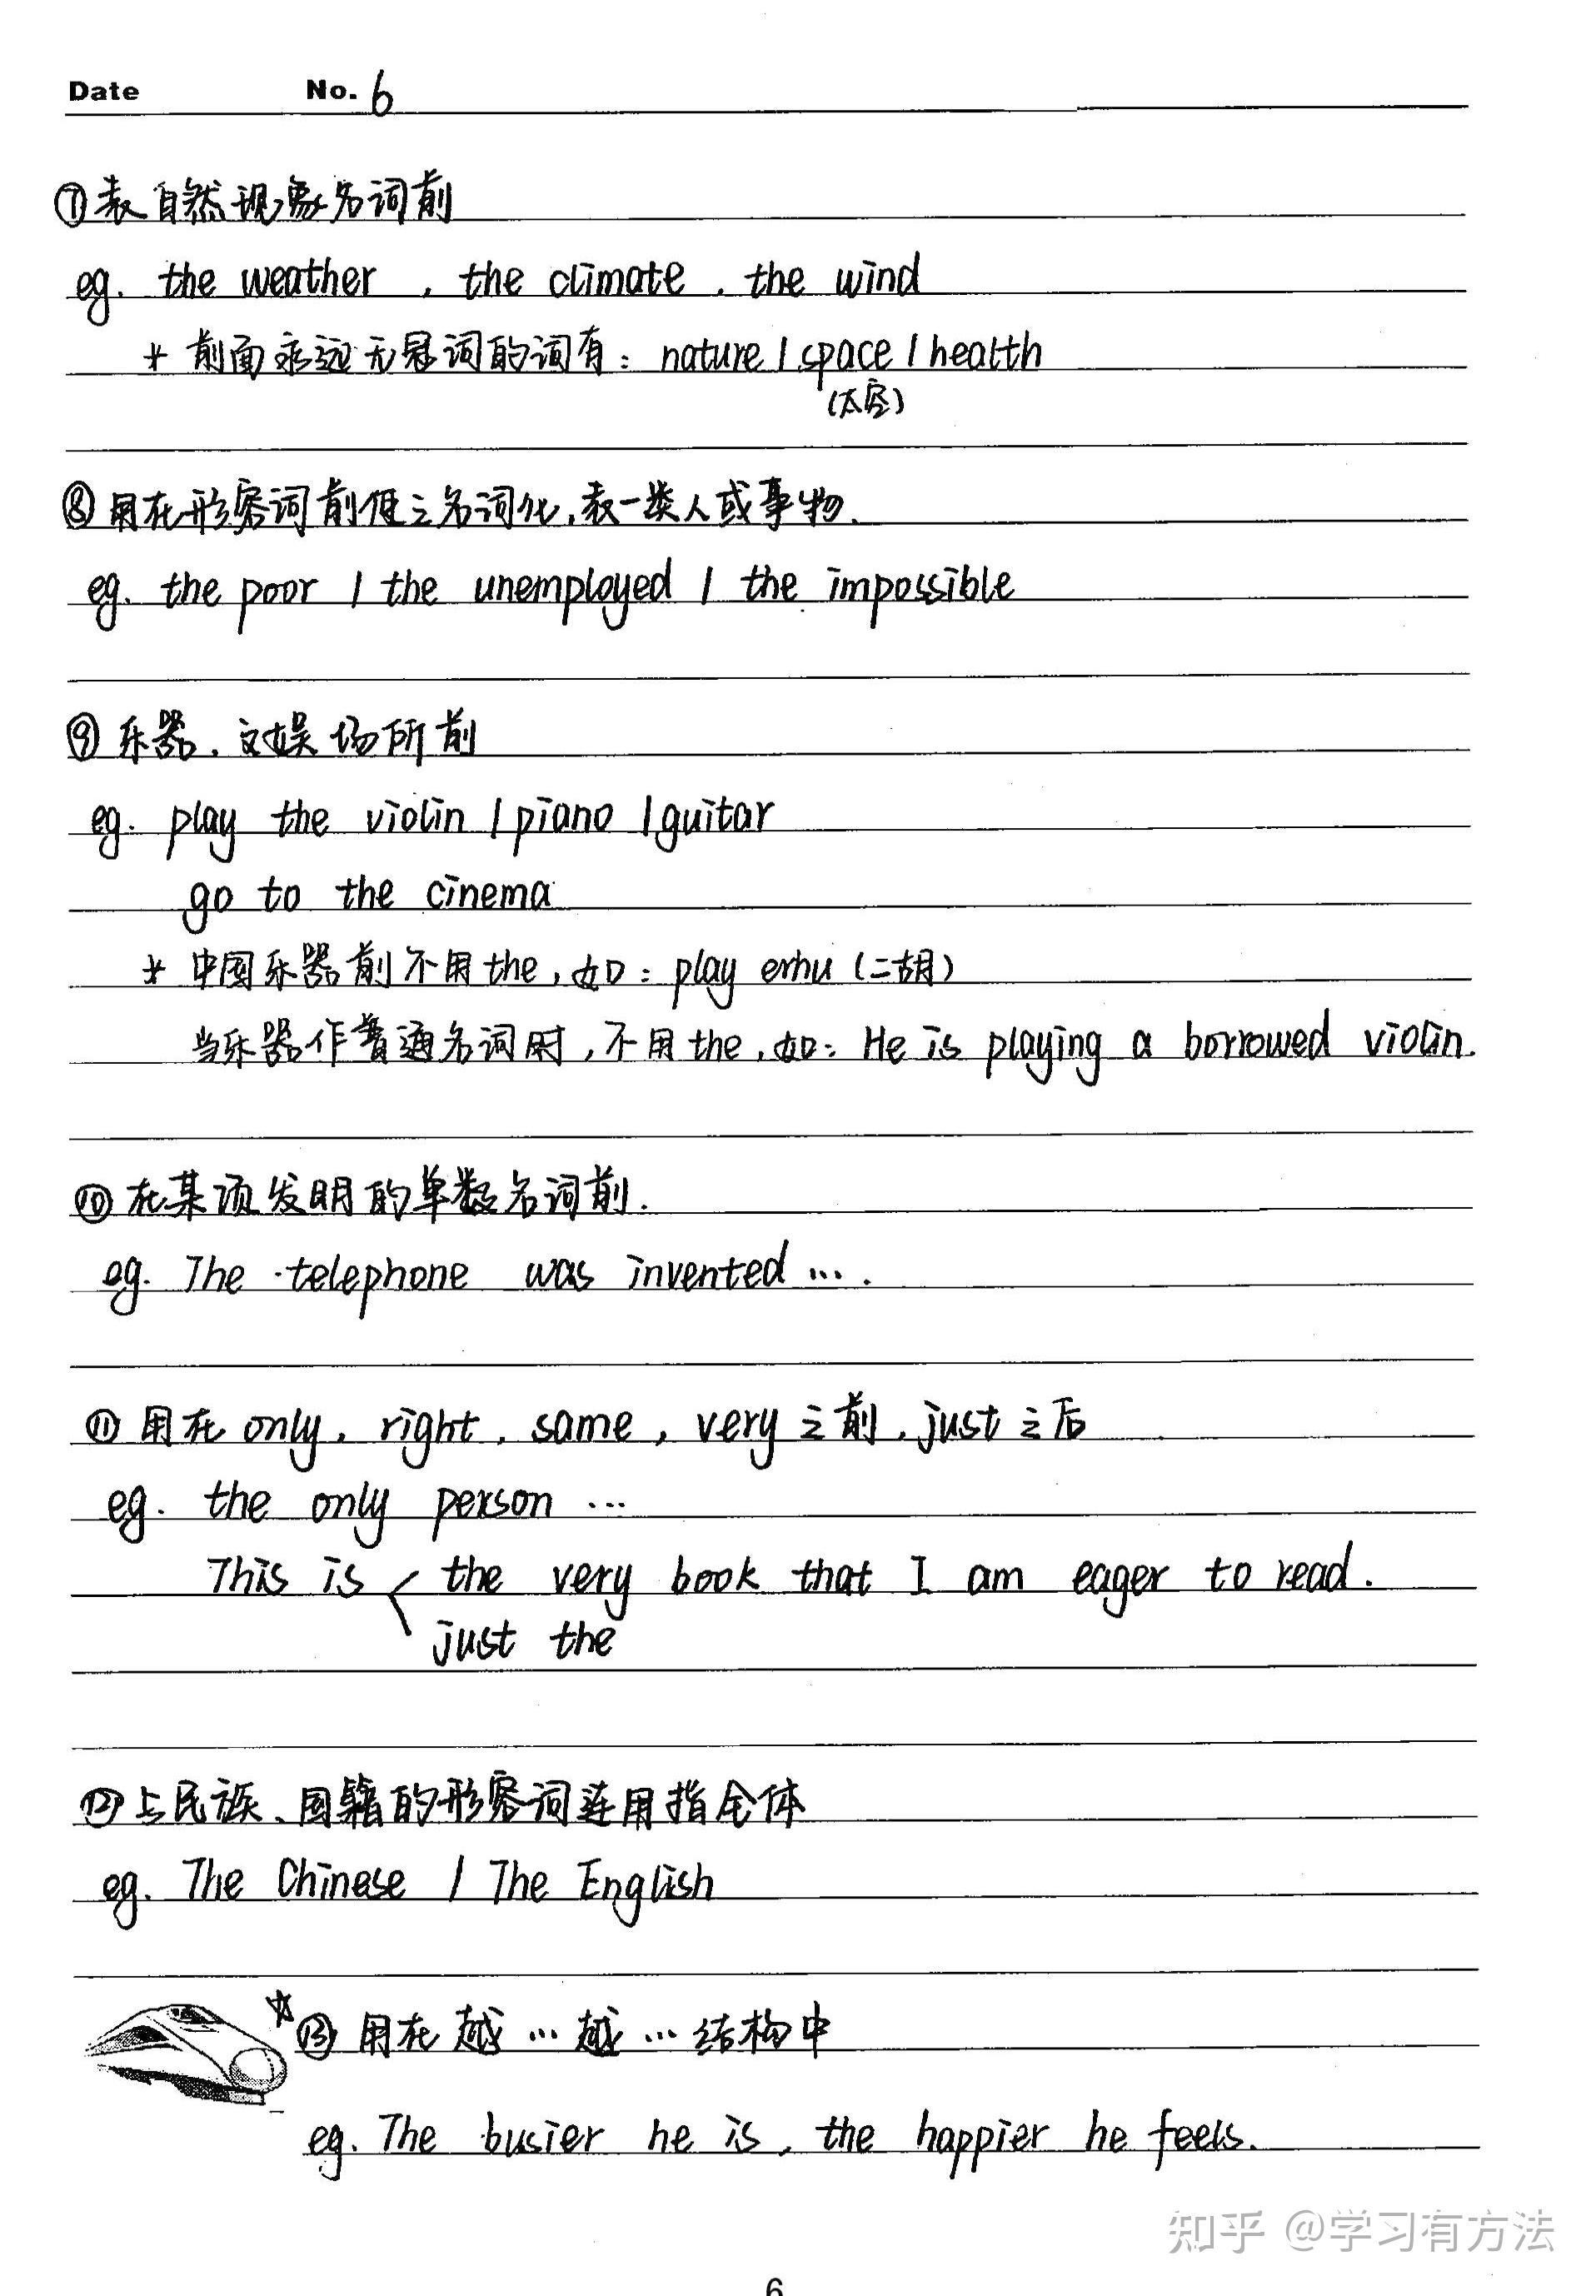 Date No. 6
⑦表自然现象名词前
eg. the weather , the climate , the wind
* 前面永远无冠词的词有: nature / space / health
(太空)
⑧用在形容词前使之名词化,表一类人或事物.
eg. the poor / the unemployed / the impossible
⑨乐器,文娱场所前
eg. play the violin / piano / guitar
go to the cinema
* 中国乐器前不用the,如: play erhu (二胡)
当乐器作普通名词时,不用the,如: He is playing a borrowed violin.
⑩在某项发明的单数名词前.
eg. The telephone was invented ... .
⑪用在 only, right, same, very 之前, just 之后
eg. the only person ...
This is the very book that I am eager to read.
just the
⑫与民族、国籍的形容词连用指全体
eg. The Chinese / The English
☆⑬用在 越 ... 越 ... 结构中
eg. The busier he is, the happier he feels.
知乎 @学习有方法
6